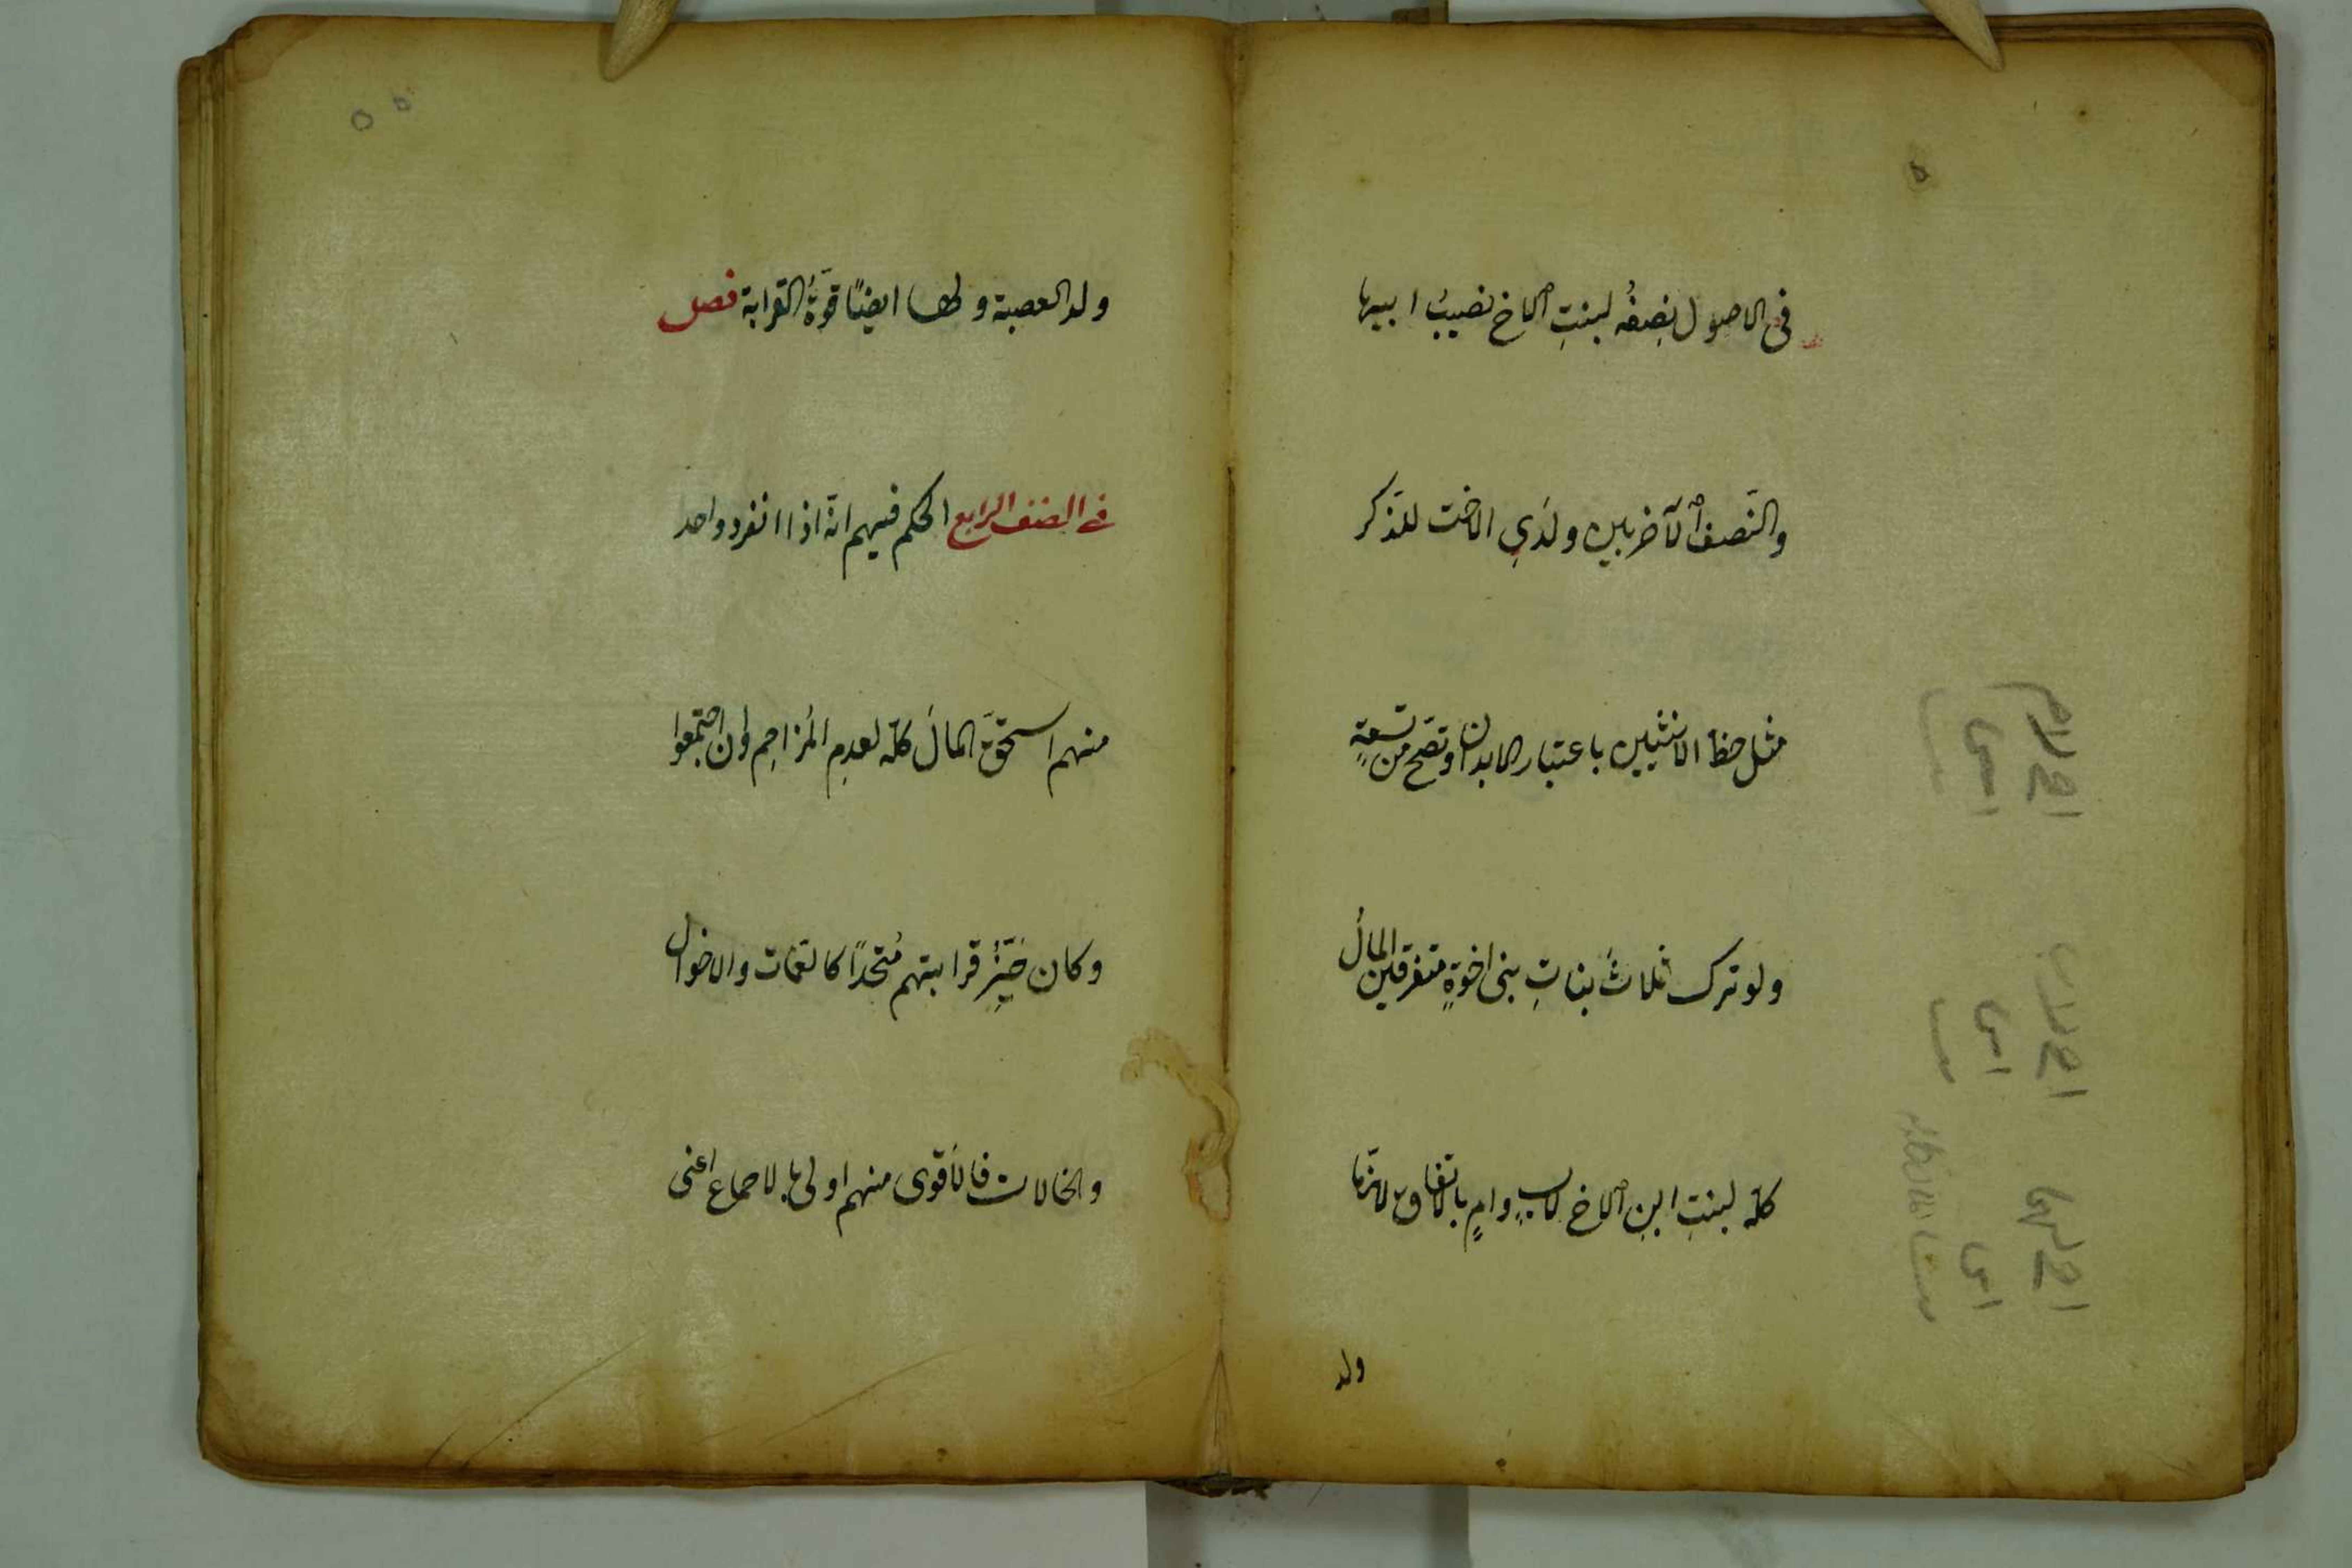 فى الاصول نصفُه لبنتِ الاخ نصيبُ ابيها
والنّصف الآخر بين ولدَيِ الاخت للذّكر
مثل حظ الانثيين باعتبار الابدان وتصّح من تسعةٍ
ولو ترك ثلاثُ بناتِ بنى اخوةٍ متفرقين المالُ
كلّه لبنتِ ابنِ الاخ لابٍ وامٍ بالاتفاق لانّها
ولد
ولد العصبة ولها ايضًا قوّةُ القرابة فصل
فى الصنف الرابع الحكم فيهم انّه اذا انفرد واحد
منهم استحقَّ المالَ كلّه لعدمِ المُزاحِم وان اجتمعوا
وكان حَيِّزُ قرابتهم مُتّحدًا كالعمّات والاخوال
والخالات فالاَقوى منهم اولى بالاجماع اعنى
٥٥